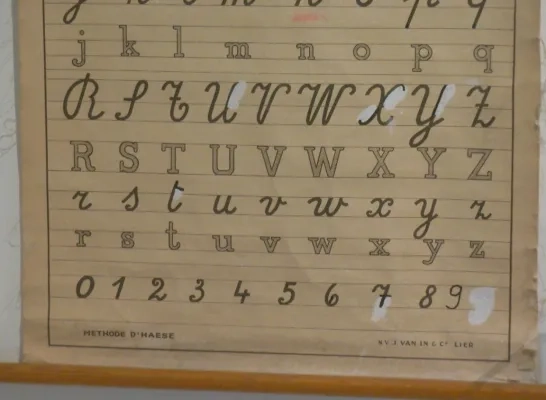 j k l m n o p q
R S T U V W X Y Z
R S T U V W X Y Z
r s t u v w x y z
r s t u v w x y z
0 1 2 3 4 5 6 7 8 9
METHODE D'HAESE
N.V. J. VAN IN & Cº LIER